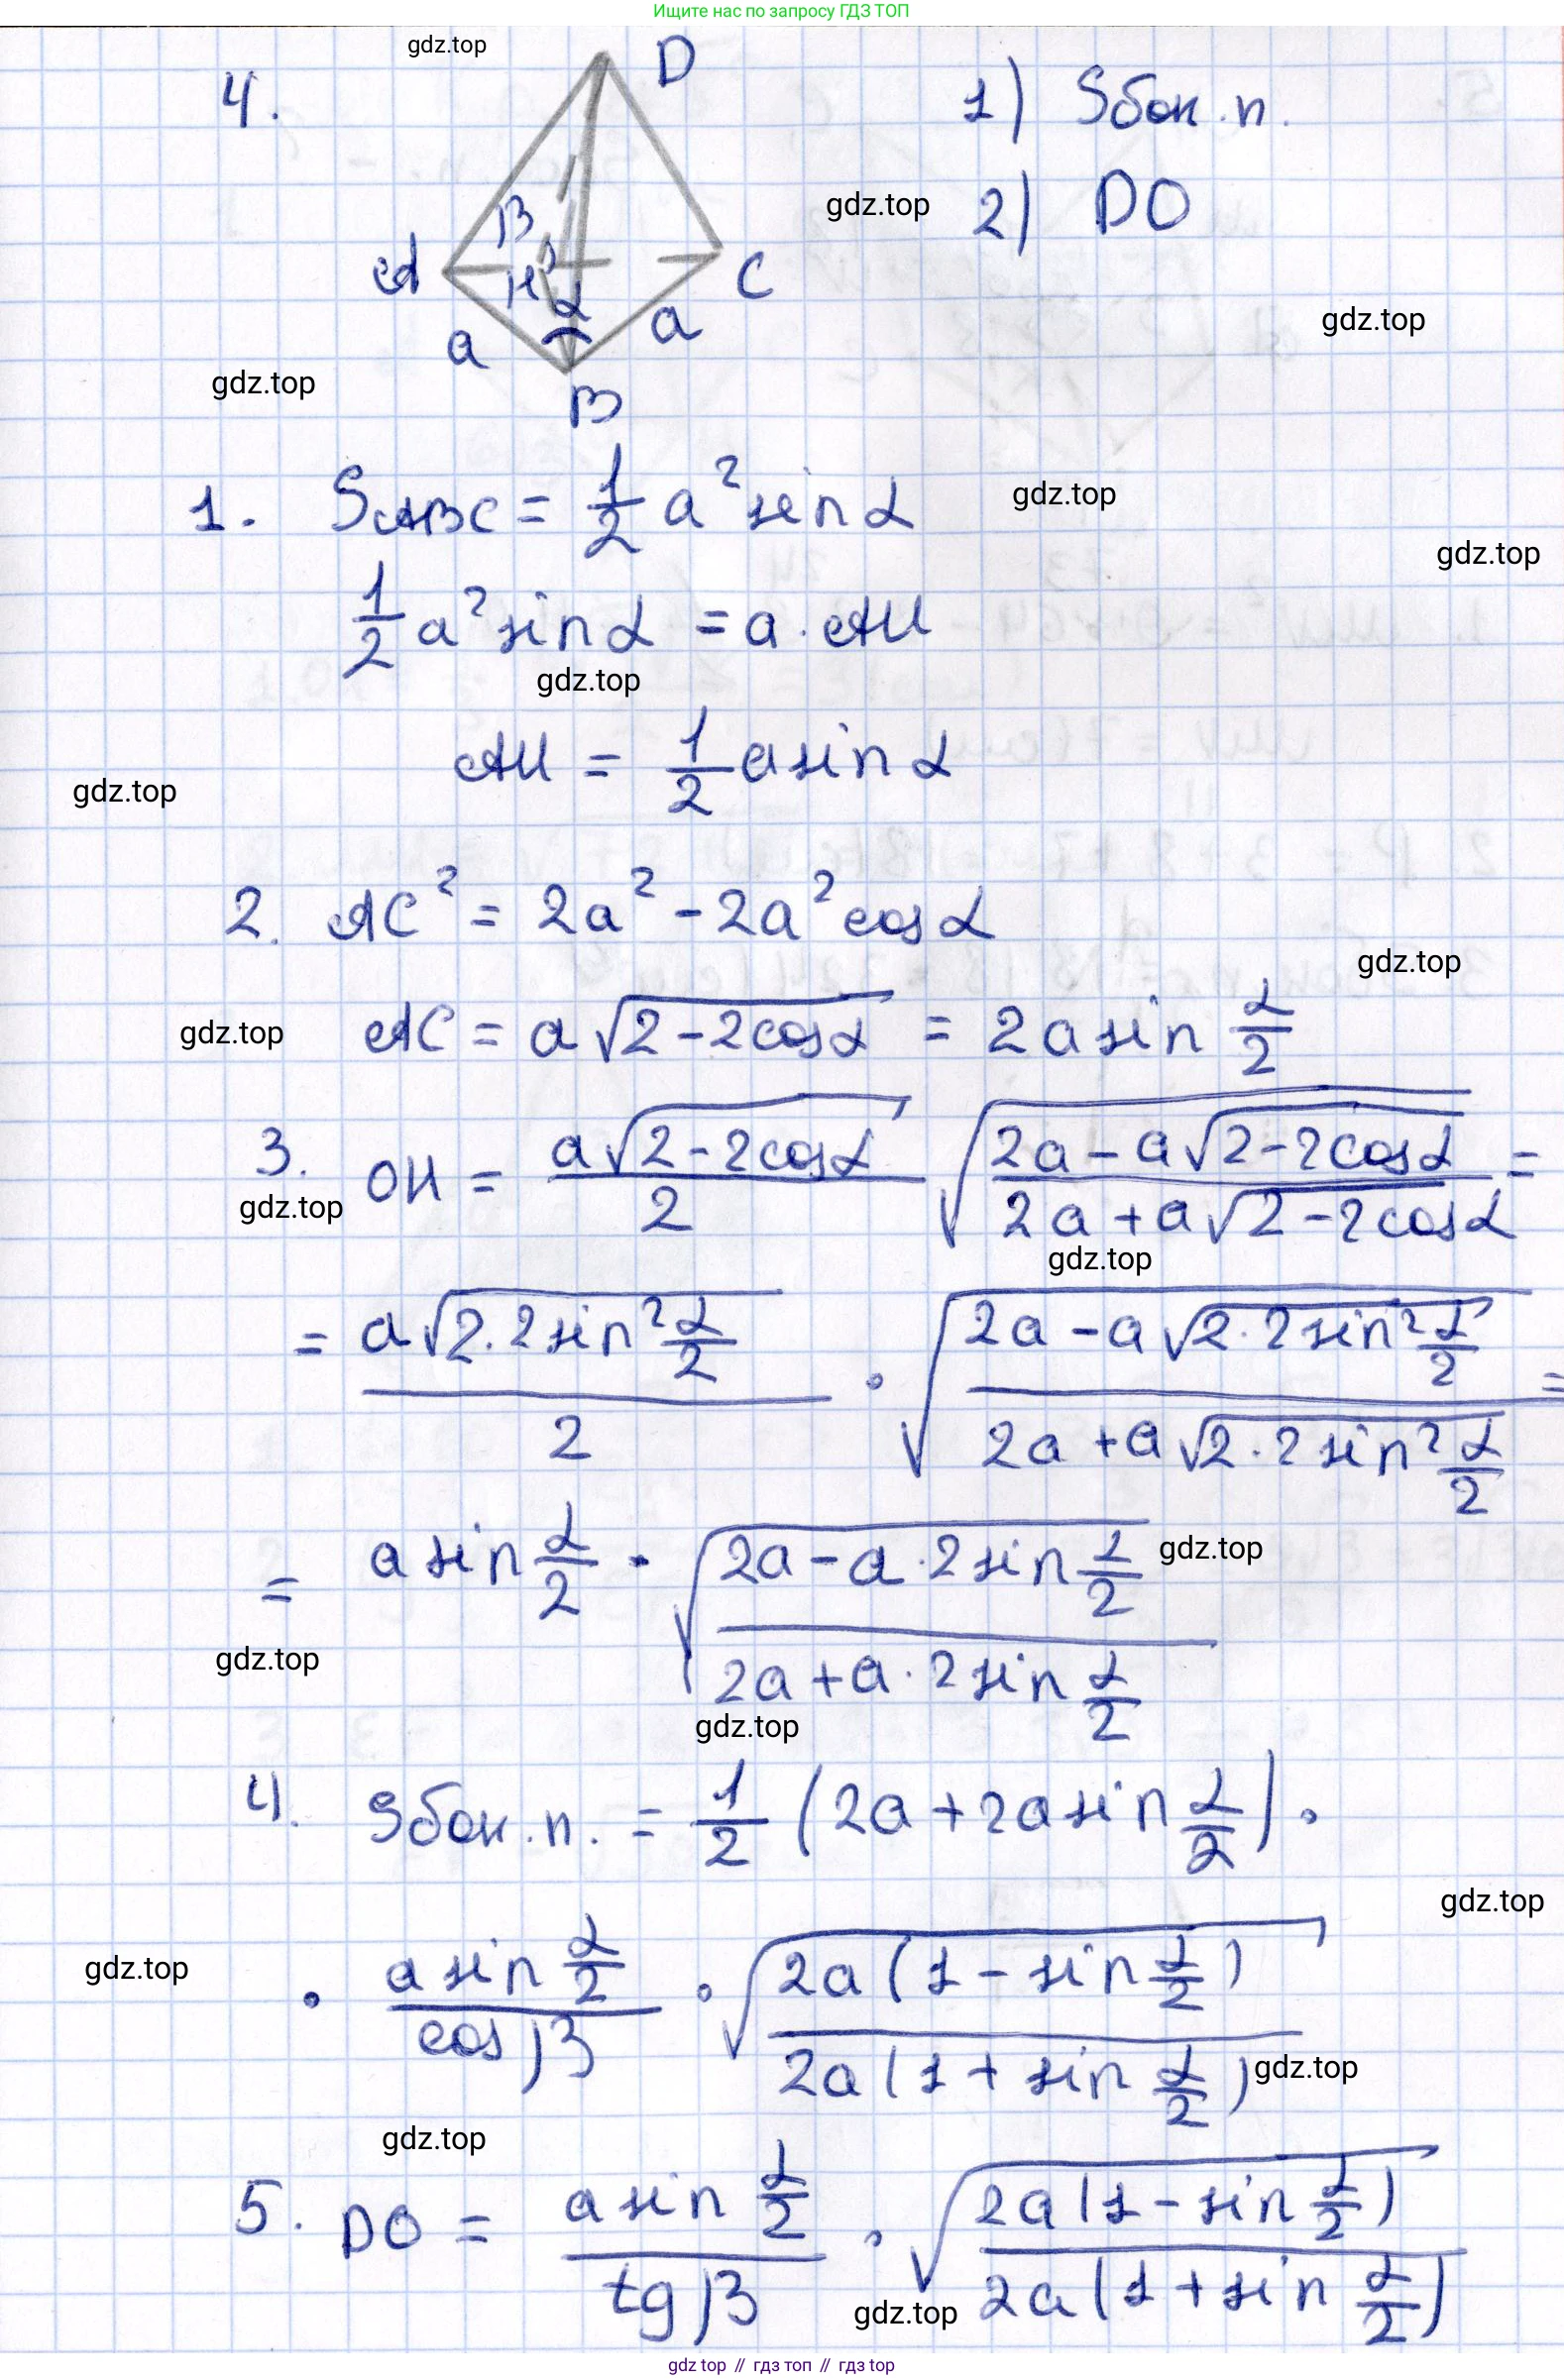 Ищите нас по запросу ГДЗ ТОП
gdz.top
4.
D
1) Sбок.п.
2) DO
gdz.top
β
A
H
α
C
a
a
gdz.top
gdz.top
B
1. SABC = 1/2 a² sin α
gdz.top
gdz.top
1/2 a² sin α = a · AH
gdz.top
AH = 1/2 a sin α
gdz.top
2. AC² = 2a² - 2a² cos α
gdz.top
gdz.top
AC = a √(2-2cos α) = 2a sin α/2
3. OH = a√(2-2cos α)/2 √((2a - a√(2-2cos α))/(2a + a√(2-2cos α))) =
gdz.top
gdz.top
= a√(2·2 sin² α/2)/2 · √((2a - a√(2·2 sin² α/2))/(2a + a√(2·2 sin² α/2))) =
= a sin α/2 · √((2a - a·2 sin α/2)/(2a + a·2 sin α/2))
gdz.top
gdz.top
gdz.top
4. Sбок.п. = 1/2 (2a + 2a sin α/2) ·
gdz.top
gdz.top
· a sin α/2 / cos β · √(2a(1 - sin α/2)/2a(1 + sin α/2))
gdz.top
gdz.top
5. DO = a sin α/2 / tg β · √(2a(1 - sin α/2)/2a(1 + sin α/2))
gdz.top
gdz top // гдз топ // gdz top